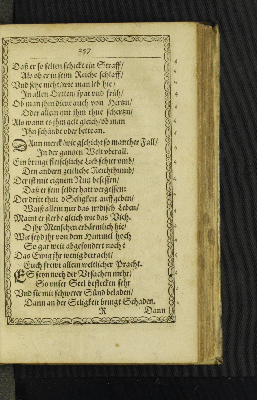 257
Daß er so selten schickt ein Straff/
Als ob er in seim Reiche schlaff/
Und sehe nicht/ wie man leb hie/
In allen Orten/ spat und früh/
Ob man ihm dient auch von Hertzn/
Oder allein mit ihm thue schertzn/
Als wann es ihm gelt gleich/ ob man
Ihn schändt oder bett an.
Nun merck/ wie gschicht so mancher Fall/
In der gantzen Welt überall.
Ein bringt fleischliche Lieb schier umb/
Den andern zeitliche Reichthumb/
Der ist mit eignem Nutz besessen/
Daß er seim selber hatt vergessen:
Der dritt thut d Seligkeit auffgeben/
Waiß allein nur das irrdisch Leben/
Maint er sterbe gleich wie das Vich.
O ihr Menschen erbärmlich hie/
Wie seyd ihr von dem Himmel hoch
So gar weit abgesondert noch?
Das Ewig ihr wenig betracht/
Euch frewt allein weltlicher Pracht.
Es seyn noch vir Ursachen mehr/
So unser Seel beflecken sehr
Und sie mit schwerer Sünd beladen/
Dann an der Seligkeit bringt Schaden.
R Dann